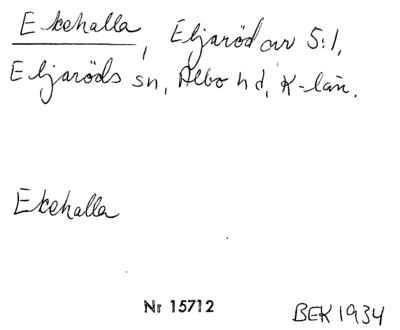 Ekehalla, Eljaröd av 5:1,
Eljaröds sn, Albo hd, K-län.
Ekehalla
Nr 15712
BEK 1934